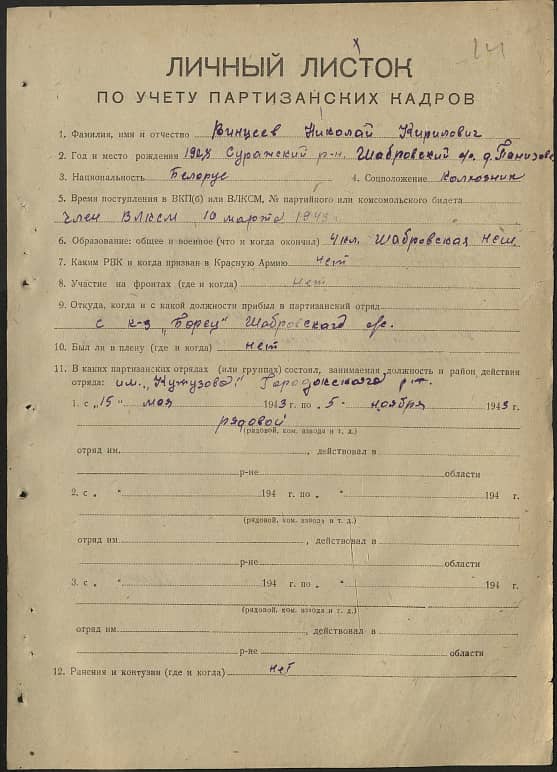 141
ЛИЧНЫЙ ЛИСТОК
ПО УЧЕТУ ПАРТИЗАНСКИХ КАДРОВ
1. Фамилия, имя и отчество Винцеев Николай Кирилович
2. Год и место рождения 1928 Суражский р-н. Шабровский с/с. д.
3. Национальность Белорус 4. Соцположение Колхозник
5. Время поступления в ВКП(б) или ВЛКСМ, № партийного или комсомольского билета
член ВЛКСМ 10 марта 1943
6. Образование: общее и военное (что и когда окончил) 4 кл. Шабровская
7. Каким РВК и когда призван в Красную Армию нет
8. Участие на фронтах (где и когда) нет
9. Откуда, когда и с какой должности прибыл в партизанский отряд
с к-з "Борец" Шабровского с/с.
10. Был ли в плену (где и когда) нет
11. В каких партизанских отрядах (или группах) состоял, занимаемая должность и район действия
отряда: им. "Кутузова" Городокского р-н.
1. с „15" мая 1943 г. по „5" ноября 1943 г.
рядовой
(рядовой, ком. взвода и т. д.)
отряд им. , действовал в
р-не области
2. с „ " 194 г. по „ " 194 г.
(рядовой, ком. взвода и т. д.)
отряд им. , действовал в
р-не области
3. с „ " 194 г. по „ " 194 г.
(рядовой, ком. взвода и т. д.)
отряд им , действовал в
р-не области
12. Ранения и контузии (где и когда) нет